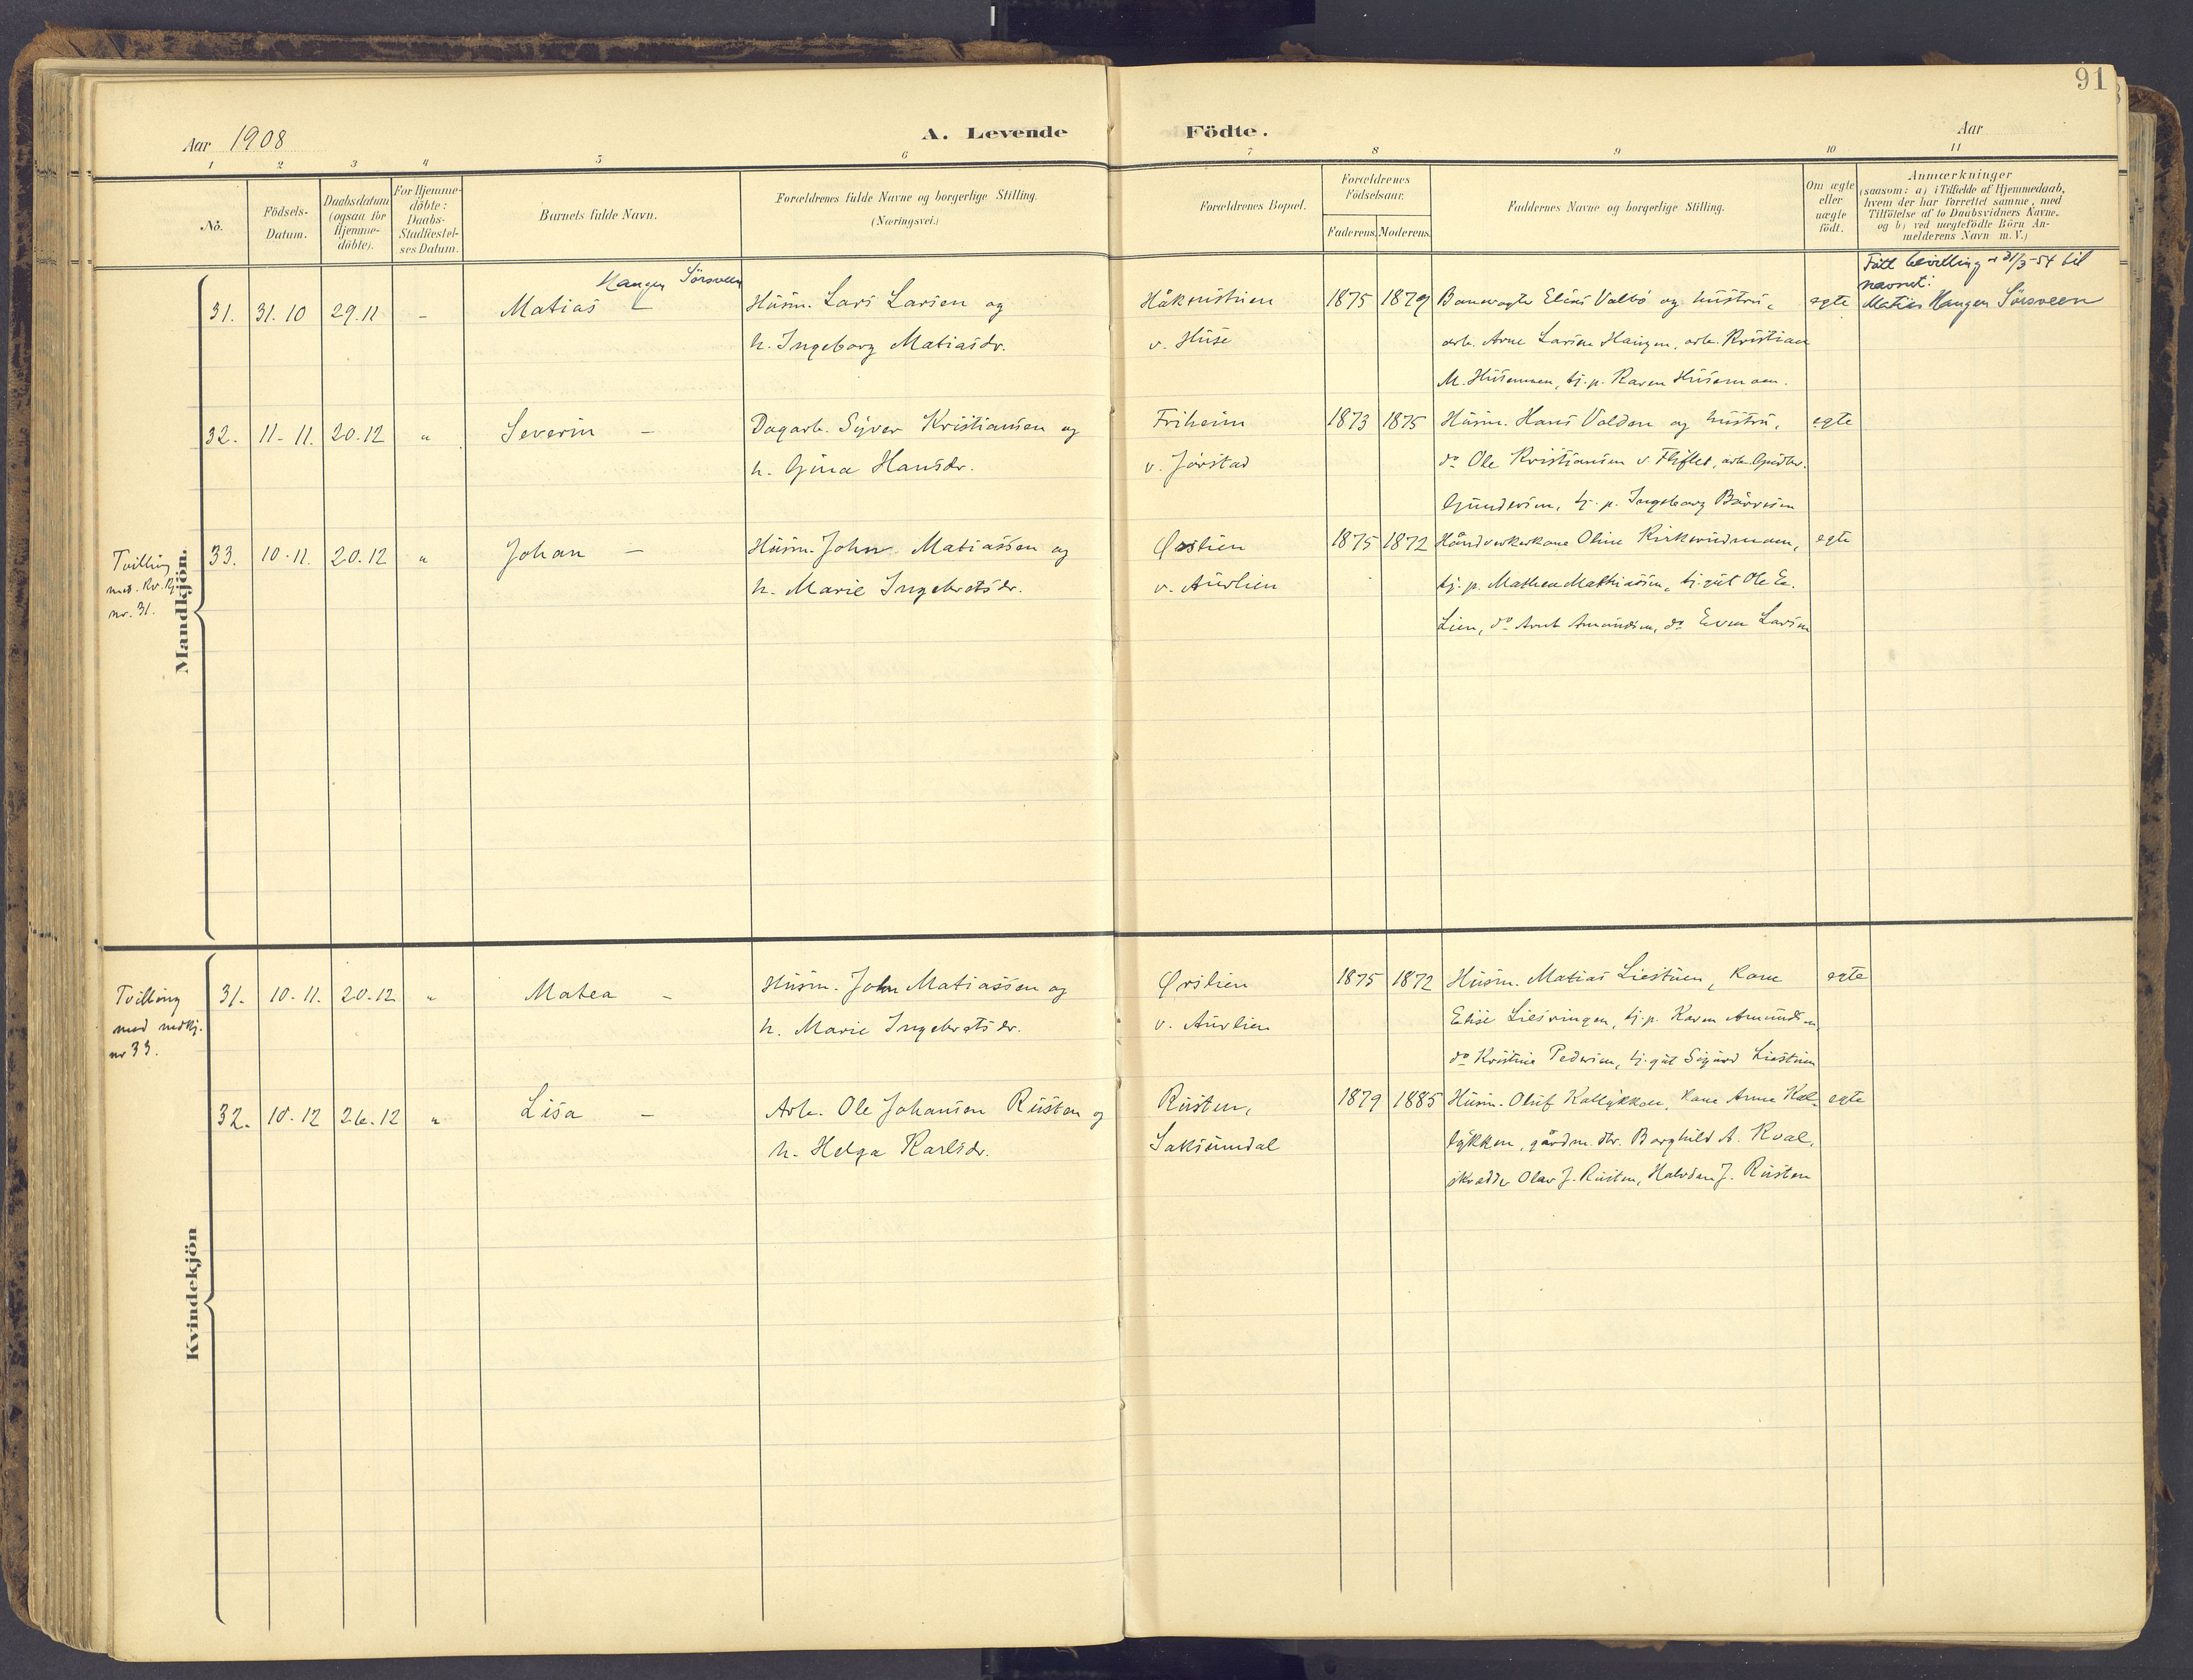 91
Aar 1908
A. Levende Födte.
Aar
1 2 3 4 5 6 7 8 9 10 11
No.
Födsels-Datum.
Daabsdatum (ogsaa for Hjemme-döbte).
For Hjemme-döbte: Daabs-Stadfæstel-ses Datum.
Barnets fulde Navn.
Forældrenes fulde Navne og borgerlige Stilling.
(Næringsvei.)
Forældrenes Bopæl.
Forældrenes Födselsaar.
Faderens. Moderens.
Faddernes Navne og borgerlige Stilling.
Om ægte eller uægte födt.
Anmærkninger
(saasom: a) i Tilfælde af Hjemmedaab,
hvem der har forrettet samme, med
Tilföielse af to Daabsvidners Navne.
og b) ved uægtefödte Börn An-
melderens Navn m. V.)
Mandkjön.
Haugen Sörsveen
Fått bevilling 31/3-54 til
navnet:
31. 31.10 29.11 - Matias - Husm. Lars Larsen og Håkenstuen 1875 1879 Banevogter Elias Valbö og hustru, egte Matias Haugen Sörsveen
h. Ingeborg Matiasdr. v. Huse arb. Arne Larsen Haugen, arb. Kristian
M. Husemoen, tj. p. Karen Husemoen.
32. 11-11. 20.12 " Severin - Dagarb. Syver Kristiansen og Friheim 1873 1875 Husm. Hans Volden og hustru, egte
h. Gina Hansdr. v. Jörstad do Ole Kristiansen v. Fliflet, arb.
Gundersen, tj. p. Ingeborg
Tvilling
med. kv. kj.
nr. 31.
33. 10-11. 20.12 " Johan - Husm. John Matiassen og Øvslien 1875 1872 Håndverkerkone Oline Kirkerudmoen, egte
h. Marie Ingebretsdr. v. Aurlien tj. p. Mathea Mathiassen, tj. gut Ole E.
Lien, do Arnt Amundsen, do Even Larsen
Kvindekjön
Tvilling
med mdkj.
nr 33.
31. 10-11. 20-12 " Matea - Husm. John Matiassen og Øvslien 1875 1872 Husm. Matias Liestuen, kone egte
h. Marie Ingebretsdr. v. Aurlien Elise Liesvingen, tj. p. Karen Amundsen
do Kristine Pedersen, tj. gut Sigurd Liestuen
32. 10-12 26.12 " Lisa - Arb. Ole Johansen Rusten og Rusten, 1879 1885 Husm. Oluf Kallykken, kone Anne Kal- egte
h. Helga Karlsdr. Saksumdal lykken, gårdm. dtr. Borghild A. Kval,
skrædder Olav J. Rusten, Halvdan J. Rusten